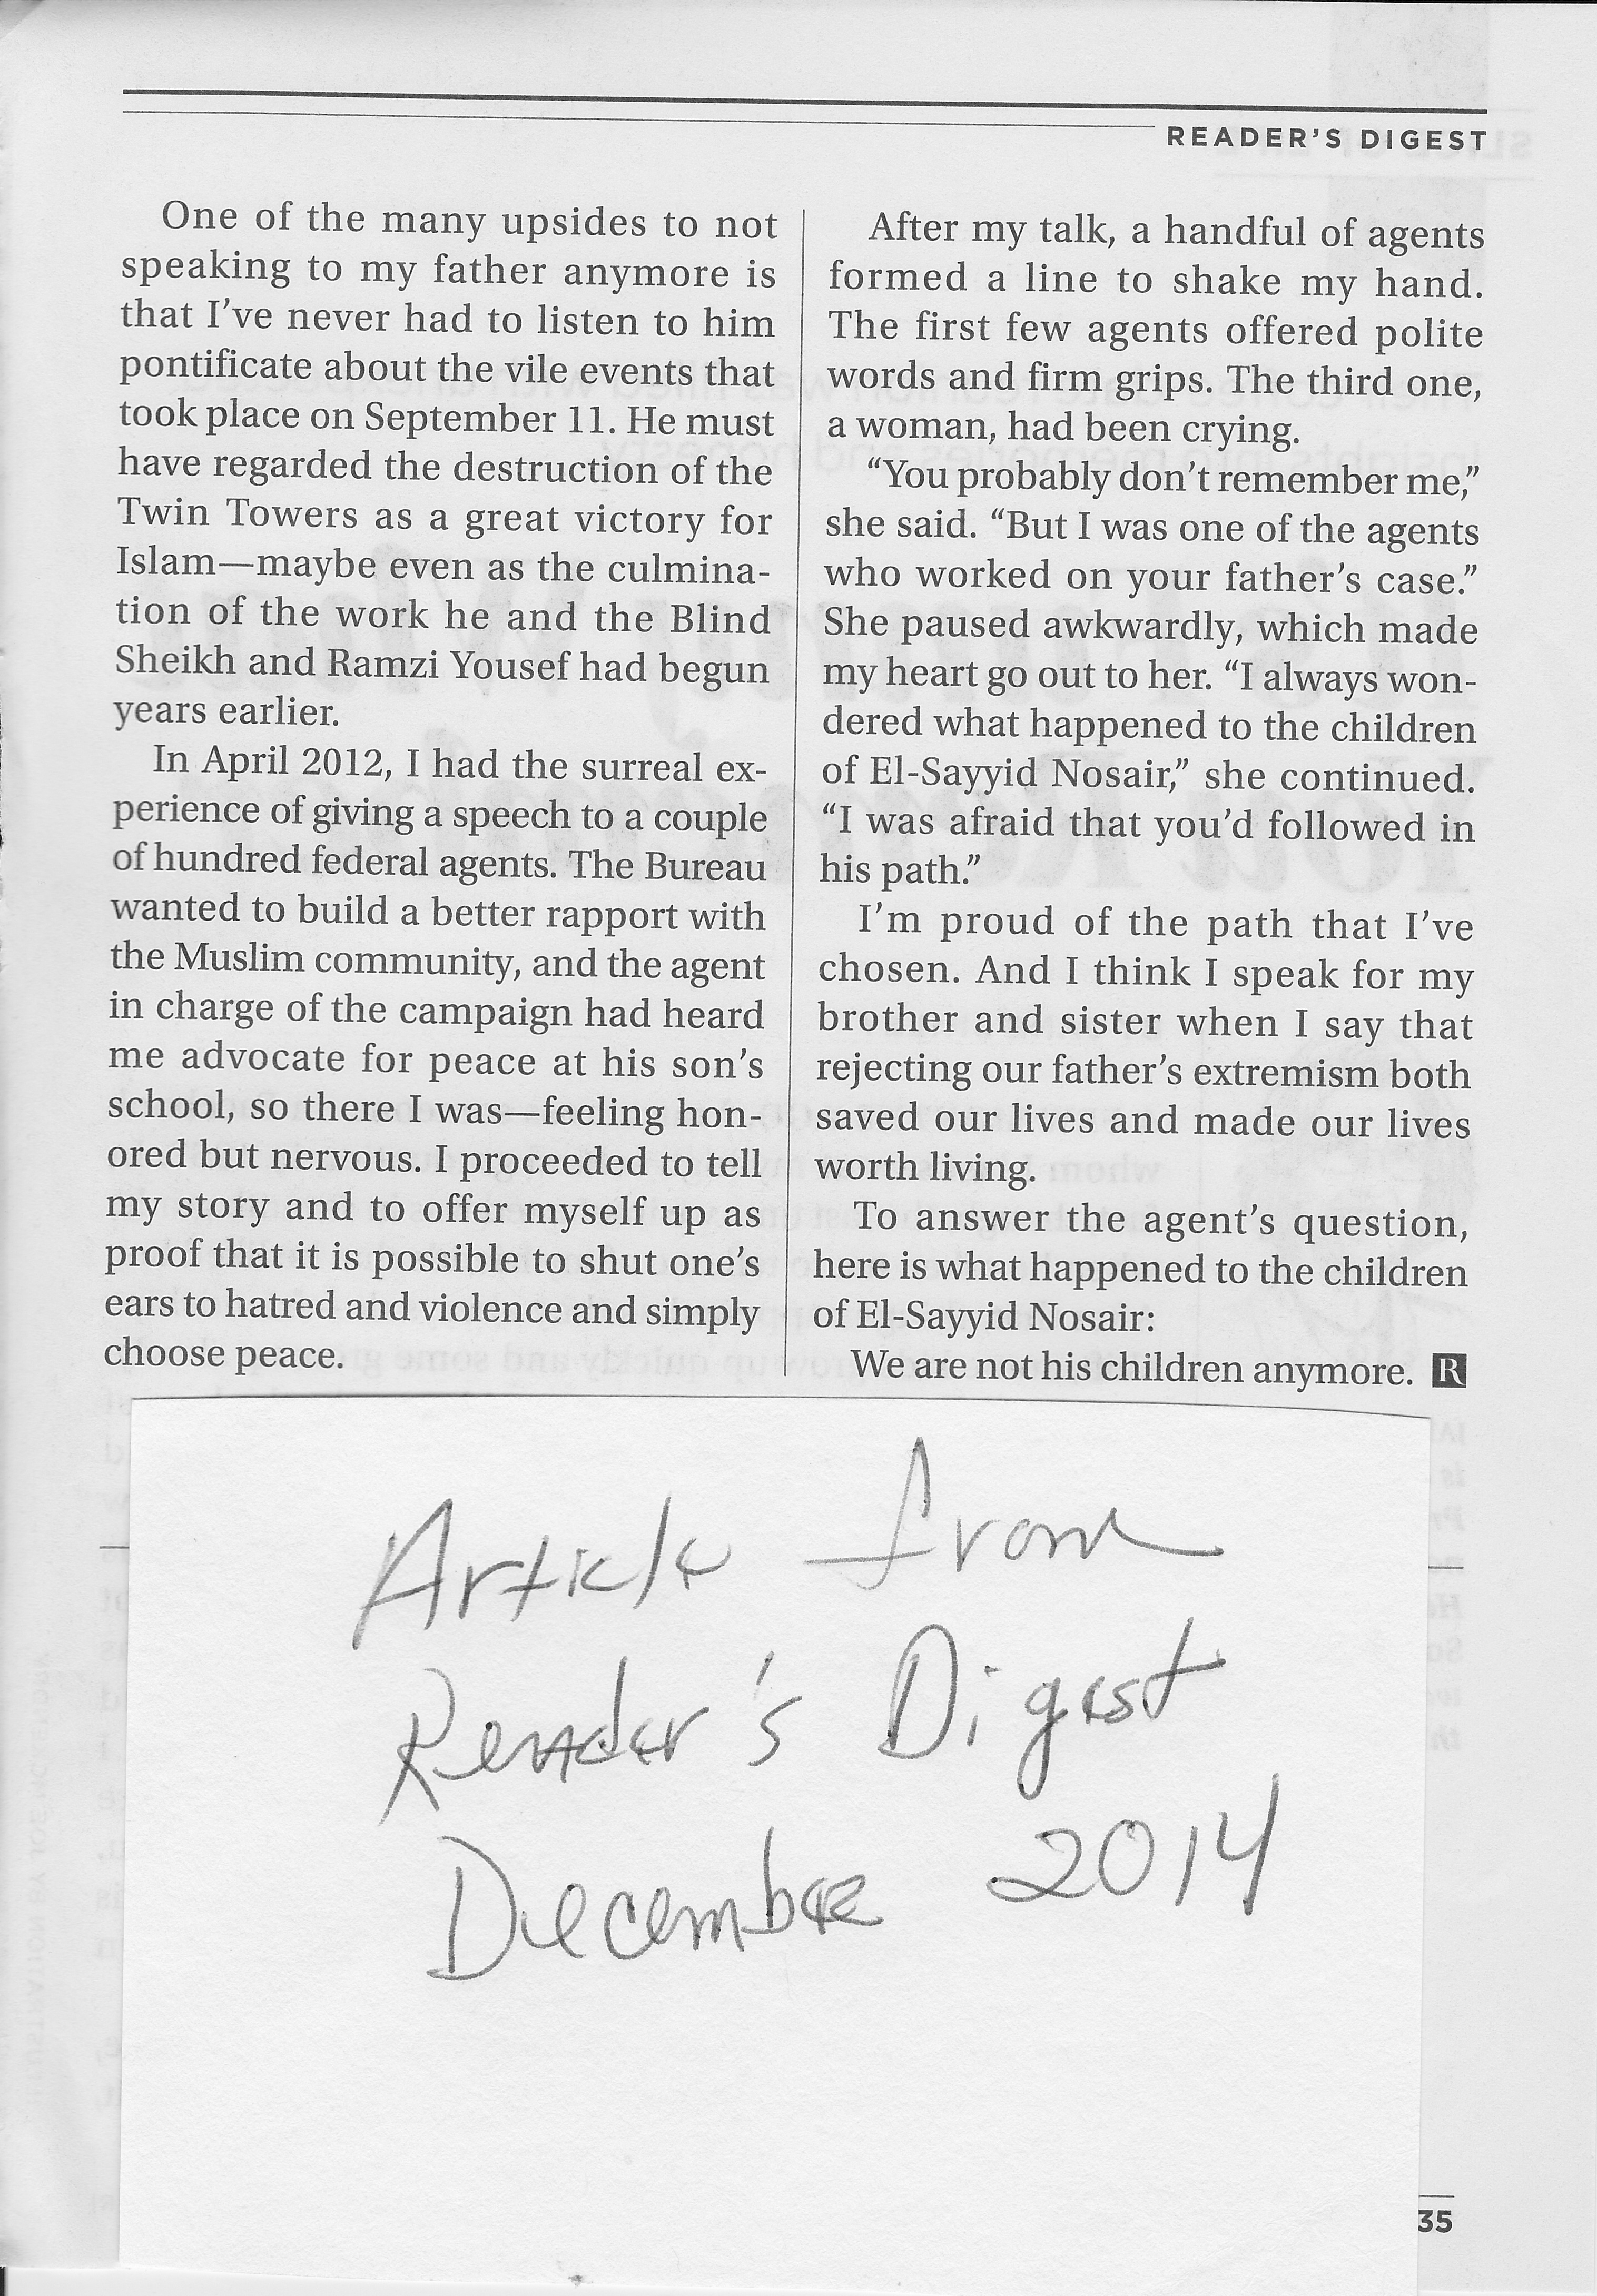 READER'S DIGEST
One of the many upsides to not
speaking to my father anymore is
that I've never had to listen to him
pontificate about the vile events that
took place on September 11. He must
have regarded the destruction of the
Twin Towers as a great victory for
Islam—maybe even as the culmina-
tion of the work he and the Blind
Sheikh and Ramzi Yousef had begun
years earlier.
In April 2012, I had the surreal ex-
perience of giving a speech to a couple
of hundred federal agents. The Bureau
wanted to build a better rapport with
the Muslim community, and the agent
in charge of the campaign had heard
me advocate for peace at his son's
school, so there I was—feeling hon-
ored but nervous. I proceeded to tell
my story and to offer myself up as
proof that it is possible to shut one's
ears to hatred and violence and simply
choose peace.
After my talk, a handful of agents
formed a line to shake my hand.
The first few agents offered polite
words and firm grips. The third one,
a woman, had been crying.
“You probably don't remember me,”
she said. “But I was one of the agents
who worked on your father's case.”
She paused awkwardly, which made
my heart go out to her. “I always won-
dered what happened to the children
of El-Sayyid Nosair,” she continued.
“I was afraid that you'd followed in
his path.”
I'm proud of the path that I've
chosen. And I think I speak for my
brother and sister when I say that
rejecting our father's extremism both
saved our lives and made our lives
worth living.
To answer the agent's question,
here is what happened to the children
of El-Sayyid Nosair:
We are not his children anymore. R
Article from
Reader's Digest
December 2014
35